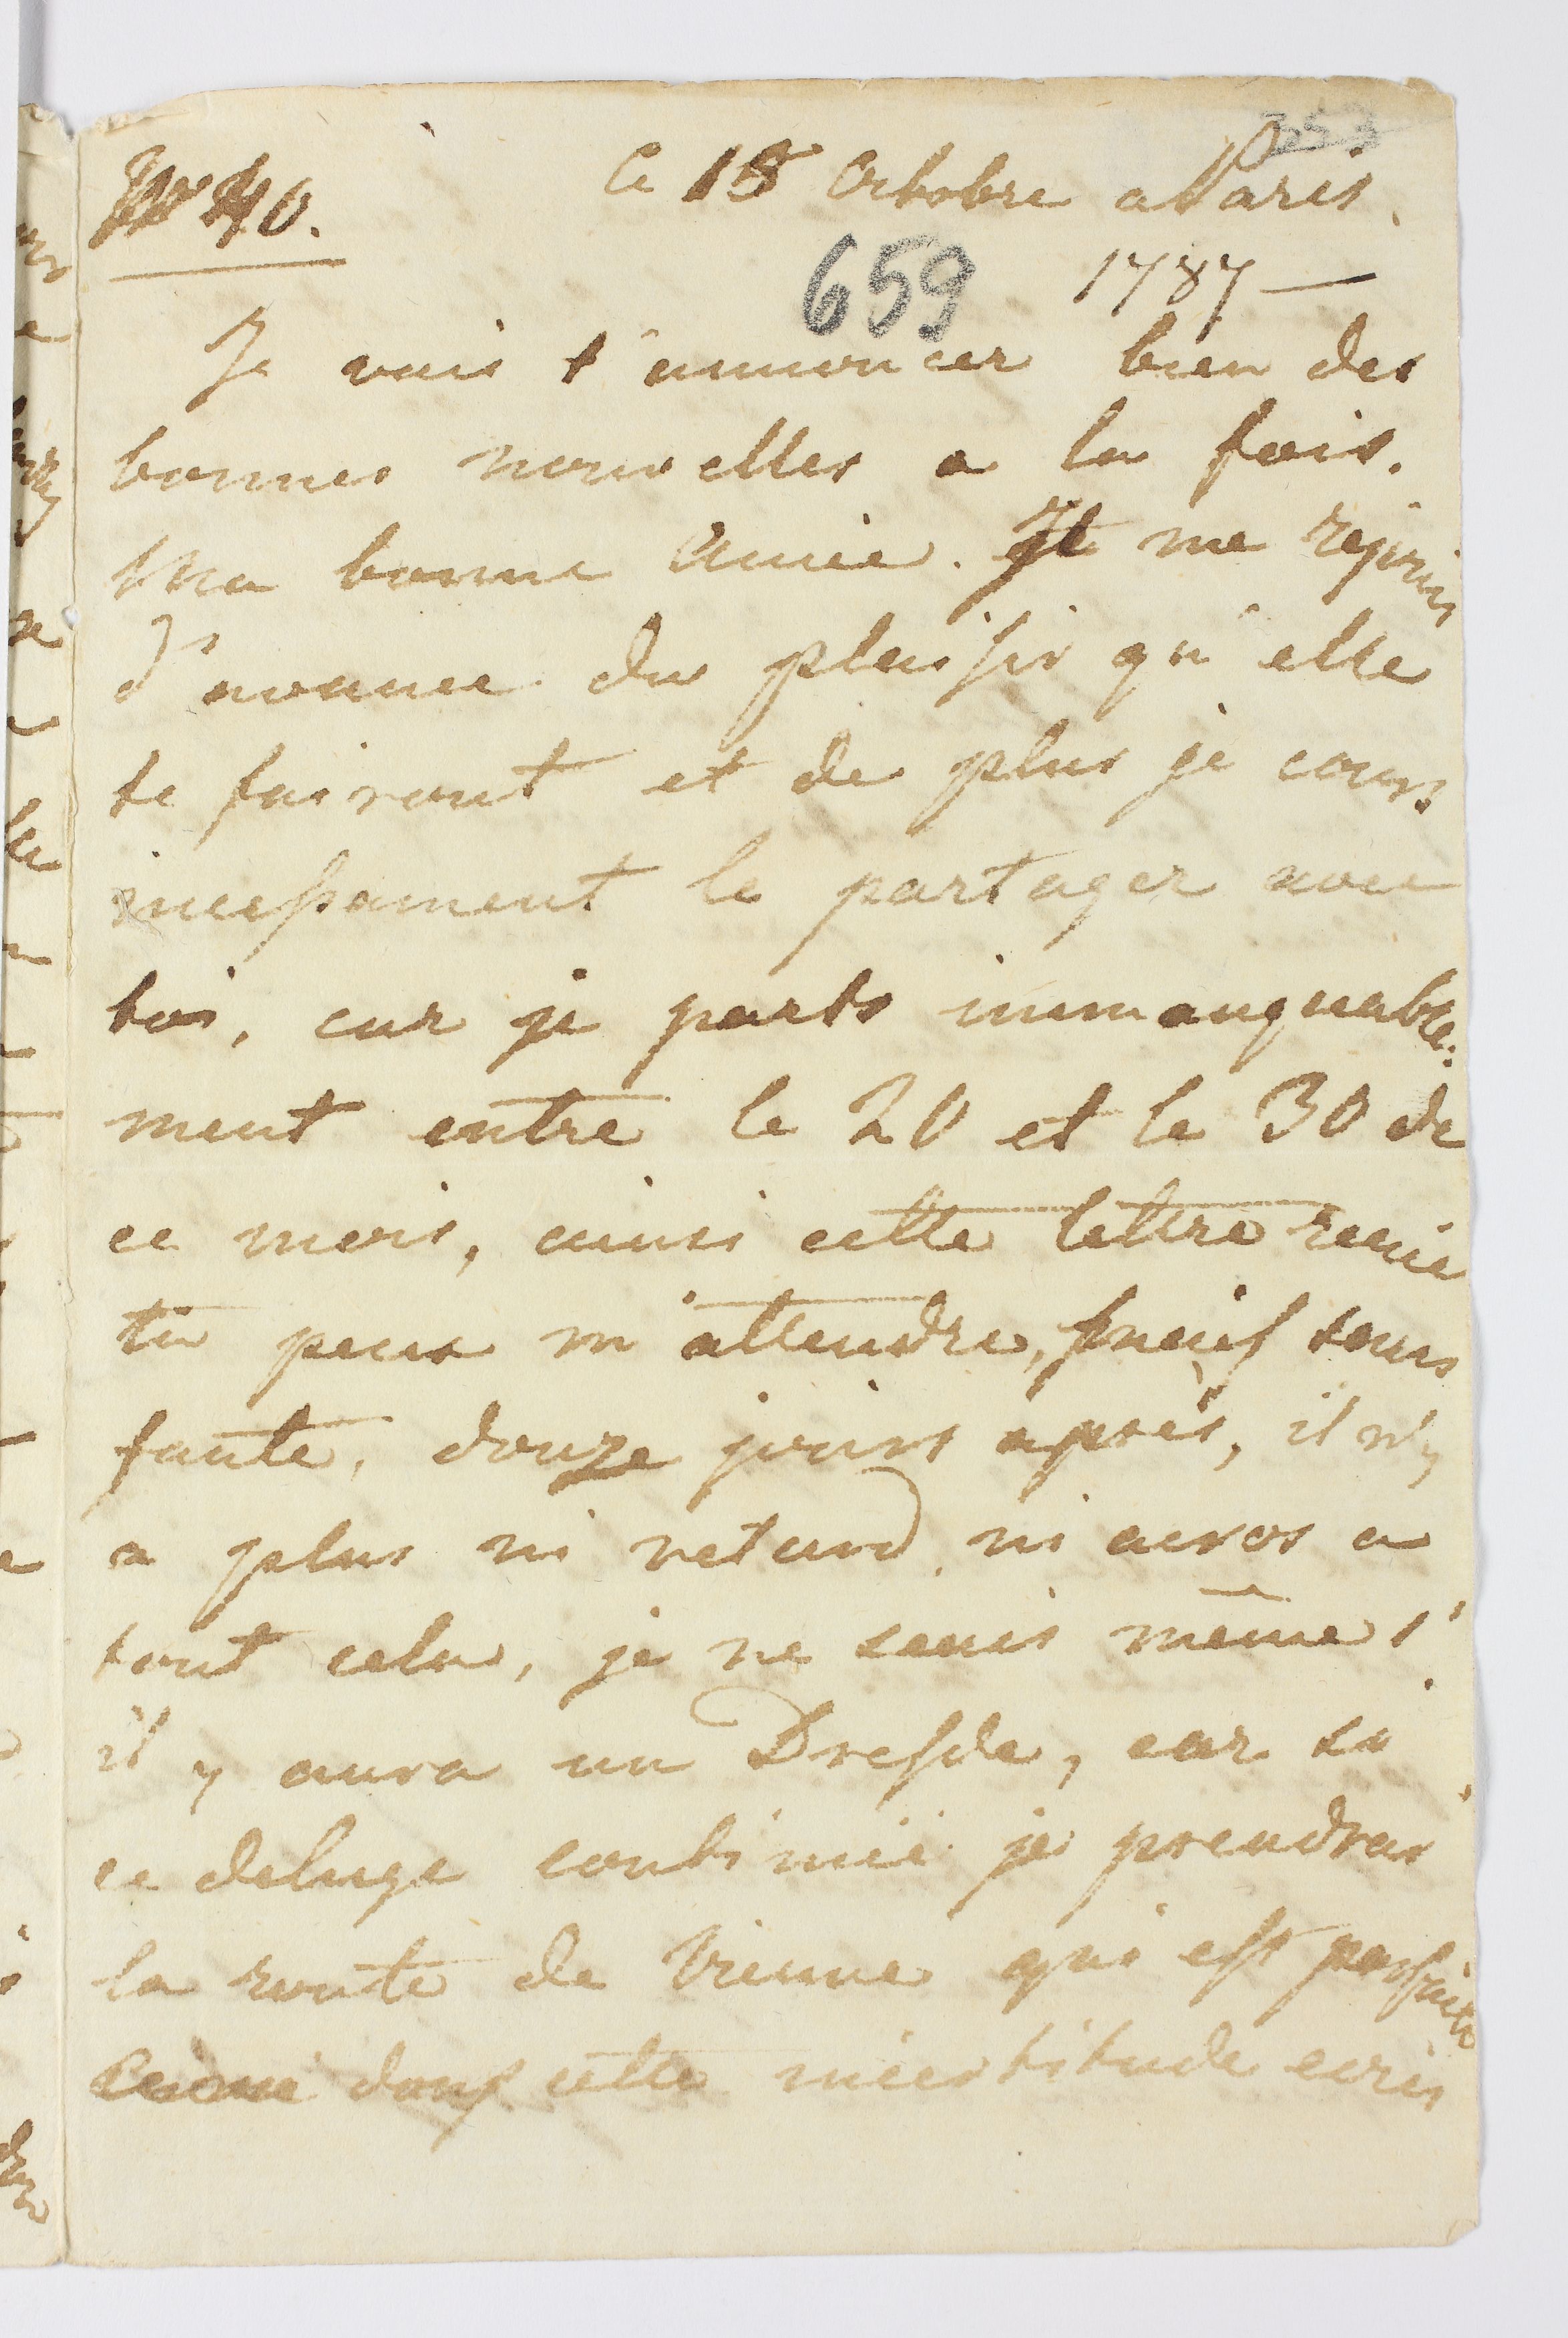 353
Ce 15 Octobre a Paris.
No 40.
659
1787 —
Je vais t'annoncer bien des
bonnes nouvelles a la fois.
Ma bonne Amie. Je me rejouis
d'avance du plaisir qu'elle
te fairont et de plus je cours
incessament le partager avec
toi, car je parts immanquable:
ment entre le 20 et le 30 de
ce mois, ainsi cette lettre reçue
tu peux m'attendre, sans
faute, douze jours après, il n'y
a plus ni retard ni acros a
tout cela, je ne sais même s'
il y aura un Dresde, car si
ce deluge continüe je prendrai
la route de Vienne qui est parfaite
dans cette incertitude ecris